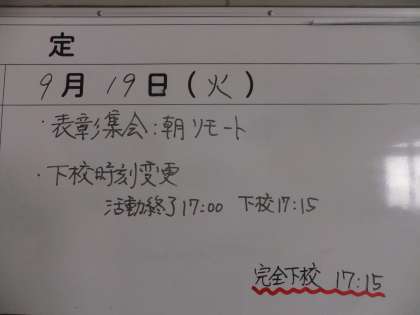 定
9月19日(火)
・表彰集会:朝リモート
・下校時刻変更
活動終了17:00 下校17:15
完全下校 17:15